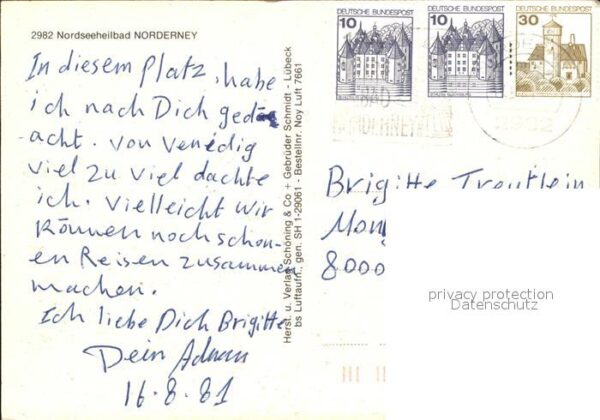 2982 Nordseeheilbad NORDERNEY
In diesem Platz, habe
ich nach Dich ged
acht. von Venedig
viel zu viel dachte
ich. Vielleicht wir
können noch schon-
en Reisen zusammen
machen.
Ich liebe Dich Brigitte
Dein Adnan
16.8.81
Herst. u. Verlag Schöning & Co + Gebrüder Schmidt - Lübeck
bs Luftaufn., gen. SH 1-29061 - Bestellnr. Noy Luft 7661
10 DEUTSCHE BUNDESPOST
10 DEUTSCHE BUNDESPOST
30 DEUTSCHE BUNDESPOST
BAD
NORDERNEY
2982
Brigitte
8000
privacy protection
Datenschutz